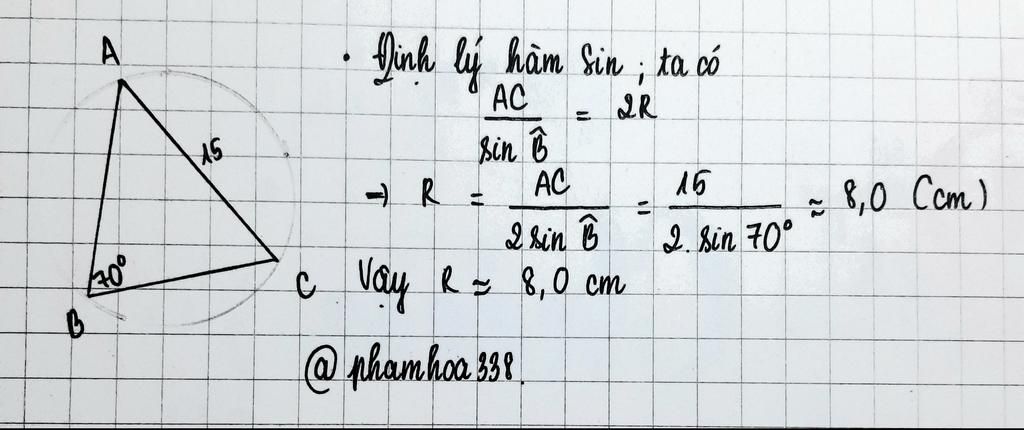 A
15
70°
B
C
• Định lý hàm sin ; ta có
AC / sin B̂ = 2R
→ R = AC / 2 sin B̂ = 15 / 2. sin 70° ≈ 8,0 (cm)
Vậy R ≈ 8,0 cm
@phamhoa338.